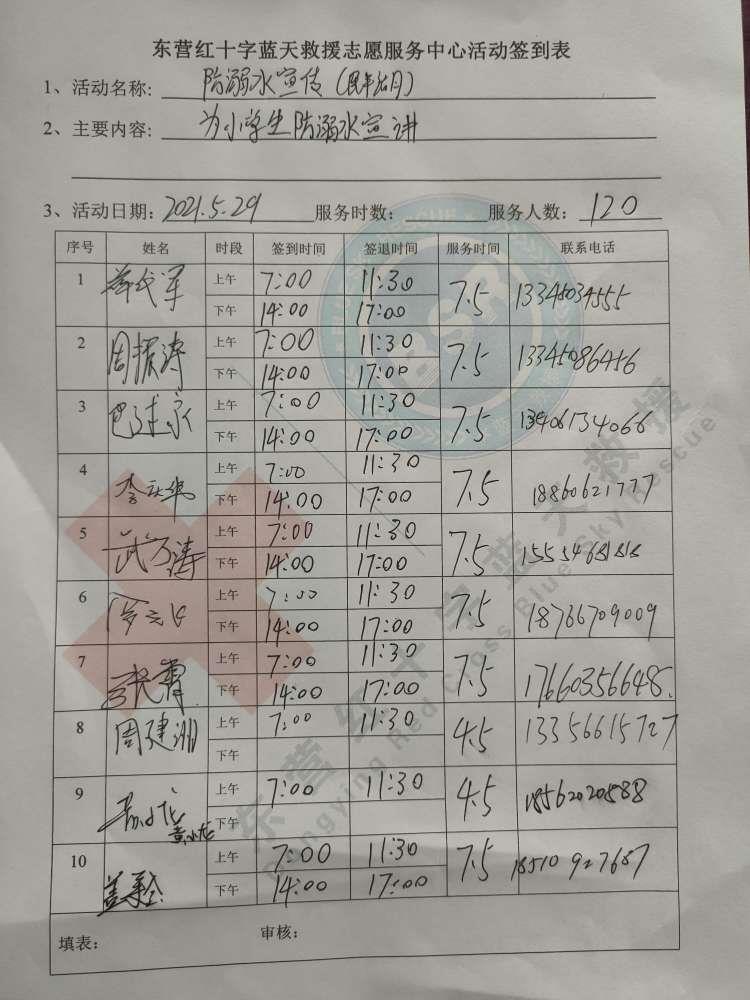 东营红十字蓝天救援志愿服务中心活动签到表
1、活动名称: 防溺水宣传
2、主要内容: 为小学生防溺水宣讲
3、活动日期: 2021.5.29 服务时数: 服务人数: 120
序号 姓名 时段 签到时间 签退时间 服务时间 联系电话
1 上午 7:00 11:30 7.5 13345034555
下午 14:00 17:00
2 周振涛 上午 7:00 11:30 7.5 13345086456
下午 14:00 17:00
3 上午 7:00 11:30 7.5 13406134066
下午 14:00 17:00
4 上午 7:00 11:30 7.5 18860621777
下午 14:00 17:00
5 武万涛 上午 7:00 11:30 7.5
下午 14:00 17:00
6 上午 7:00 11:30 7.5 18766709009
下午 14:00 17:00
7 上午 7:00 11:30 7.5 17660356648
下午 14:00 17:00
8 周建湖 上午 7:00 11:30 4.5 13356615727
下午
9 黄小龙 上午 7:00 11:30 4.5 18562020888
下午
10 上午 7:00 11:30 7.5 18510927687
下午 14:00 17:00
填表: 审核:
东营红十字蓝天救援
Dongying Red Cross Blue Sky Rescue
BSR